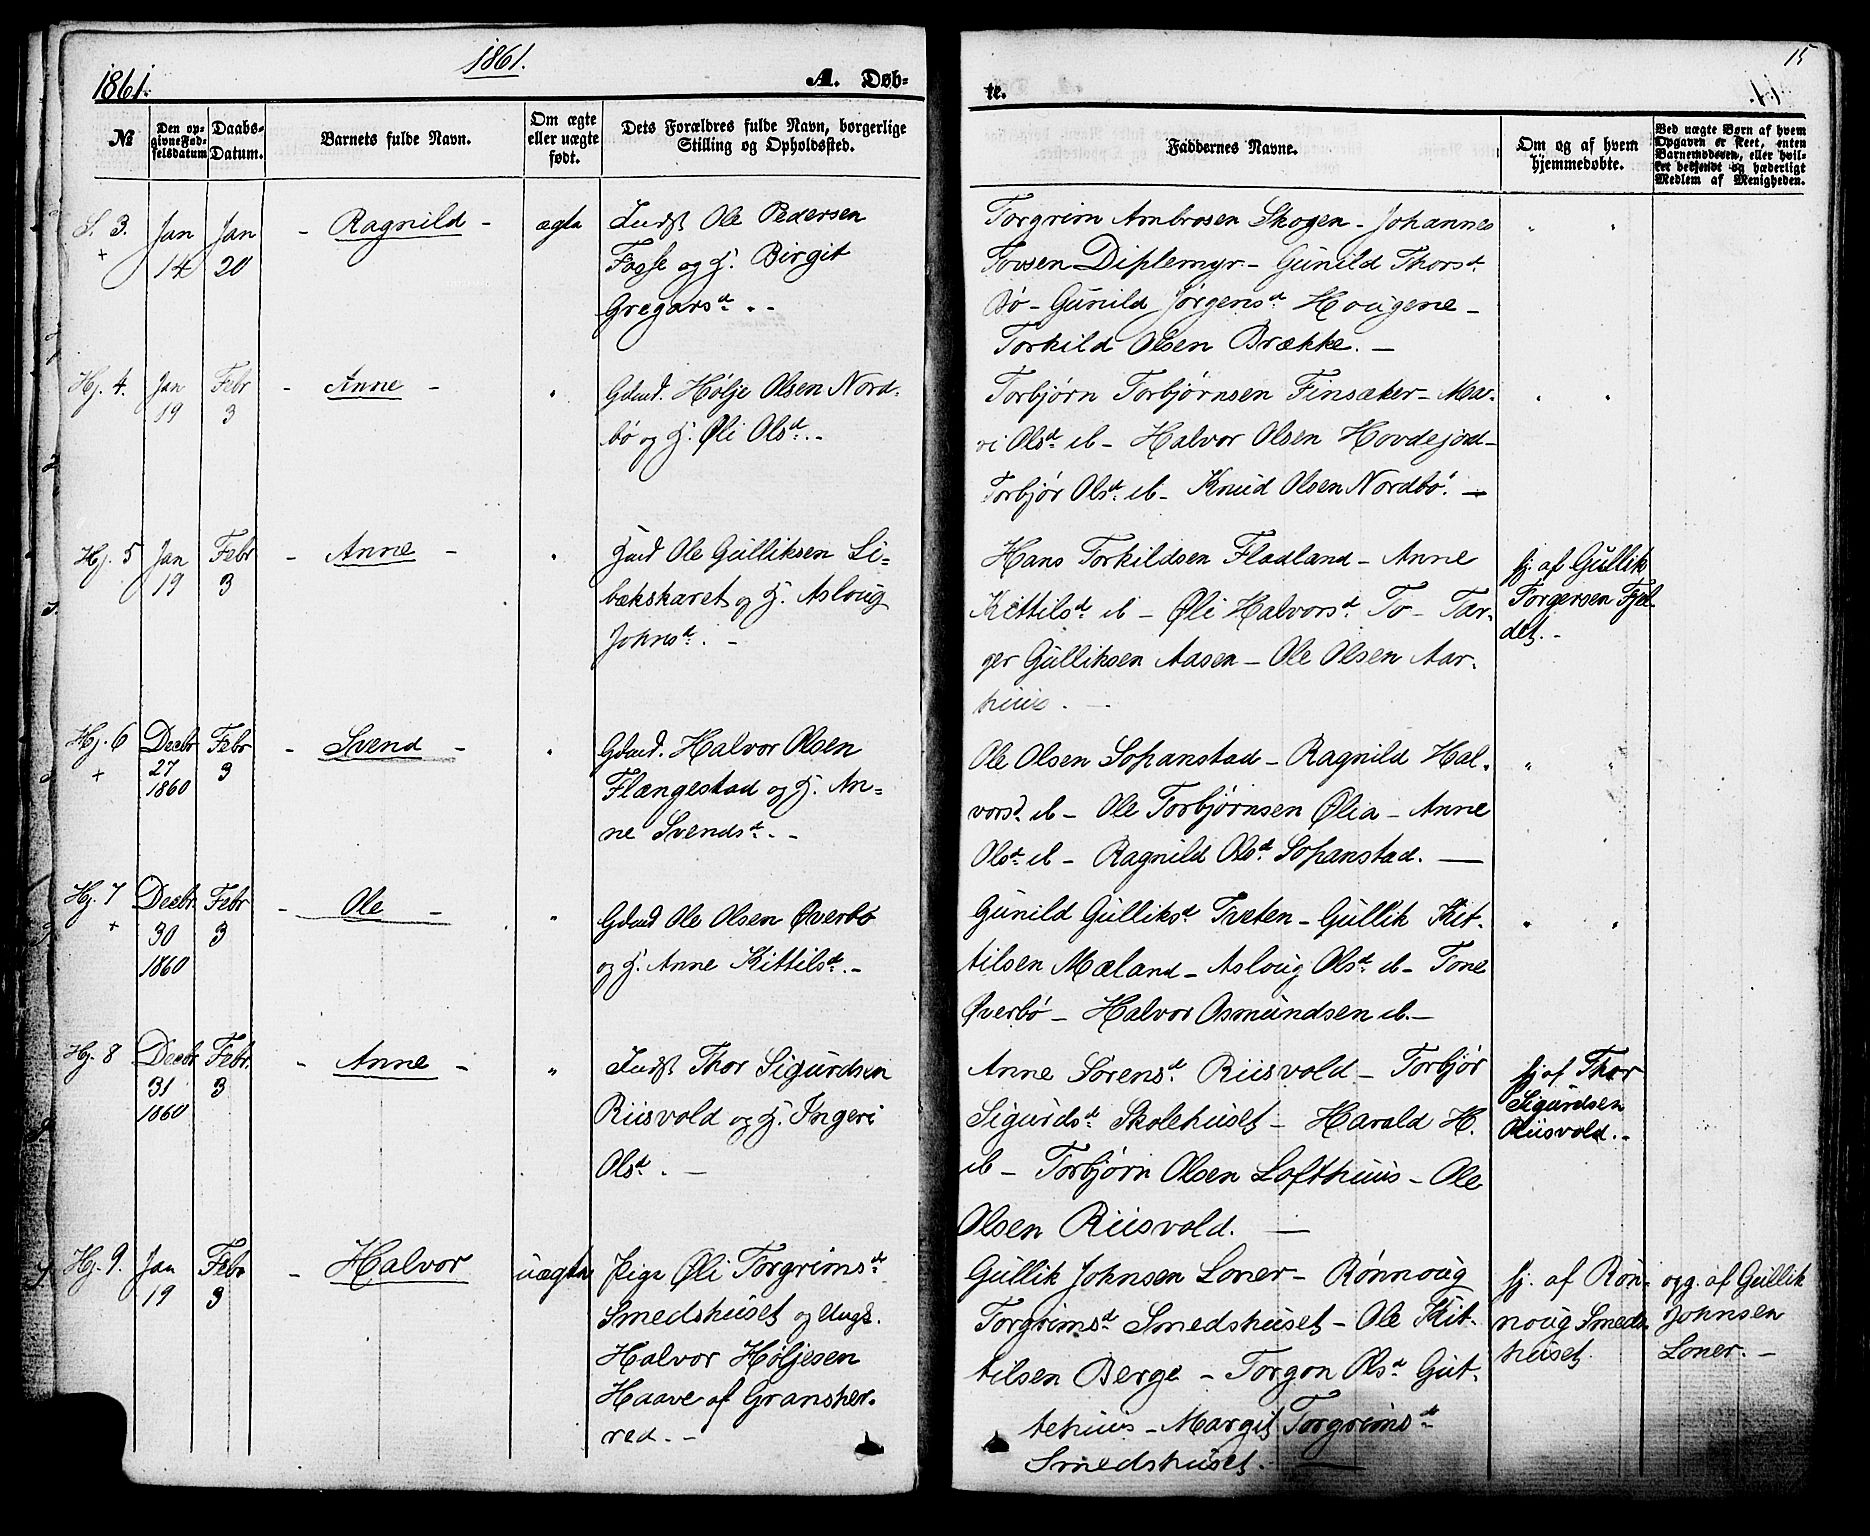 1861.
1861.
A. Døb-
№
Den op-
givne Fød-
selsdatum
Daabs-
Datum.
Barnets fulde Navn.
Om ægte
eller uægte
født.
Dets Forældres fulde Navn, borgerlige
Stilling og Opholdssted.
S. 3.
+
Jan
14
Jan
20
- Ragnild -
ægte
Indst Ole Pedersen
Fosse og H. Birgit
Gregarsd. -
Hj. 4.
Jan
19
Febr
3
- Anne -
"
Gdmd. Hølje Olsen Nord-
bø og H. Øli Olsd. -
Hj. 5
Jan
19
Febr
3
- Anne -
"
Hmd Ole Gulliksen Li-
bækskaret og H. Asloug
Johnsd. -
Hj. 6
+
Decbr
27
1860
Febr
3
- Svend -
"
Gdmd. Halvor Olsen
Flængestad og H. An-
ne Svendsd. -
Hj. 7
+
Decbr.
30
1860
Febr
3
- Ole -
"
Gdmd Ole Olsen Øverbø
og H. Anne Kittilsd. -
Hj. 8
Decbr
31
1860
Febr.
3
- Anne -
"
Indst Thor Sigurdsen
Riisvold og H. Ingeri
Olsd. -
Hj. 9.
Jan
19
Febr
3
- Halvor
uægte
Pige Øli Torgrimsd.
Smedshuset og Ungk.
Halvor Høljesen
Haave af Gransher-
red. -
15
te.
Faddernes Navne.
Om og af hvem
hjemmedøbte.
Ved uægte Børn af hvem
Opgaven er skeet, enten
Barnemoderen, eller hvil-
ket bekjendt og hæderligt
Medlem af Menigheden.
Torgrim Ambrosen Skogen - Johannes
Tovsen Diplemyr - Gunild Thorsd.
Bø - Gunild Jørgensd. Hougene -
Torkild Olsen Brække. -
" "
Torbjørn Torbjørnsen Finsæker - Ma-
ri Olsd. ib - Halvor Olsen Hovdejord -
Torbjør Olsd. ib - Knud Olsen Nordbø. -
" "
Hans Torkildsen Fladland - Anne
Kittilsd. ib - Øli Halvorsd. To - Tar-
ger Gulliksen Aasen - Ole Olsen Aar-
huus. -
hj. af Gullik
Torgersen Fjel-
det. -
Ole Olsen Sopanstad - Ragnild Hal-
vorsd. ib - Ole Torbjørnsen Ølia - Anne
Olsd. ib - Ragnild Olsd. Sopanstad. -
" "
Gunild Gulliksd. Tveten - Gullik Kit-
tilsen Mæland - Asloug Olsd. ib - Tone
Øverbø - Halvor Osmundsen ib. -
" "
Anne Sørensd. Riisvold - Torbjør
Sigurdsd. Skolehuset - Harald H.
ib - Torbjørn Olsen Lofthuus - Ole
Olsen Riisvold. -
hj af Thor
Sigurdsen
Riisvold. -
Gullik Johnsen Loner - Rønnoug
Torgrimsd. Smedshuset - Ole Kit-
tilsen Berge - Torgon Olsd. Gut-
tehuus - Margit Torgrimsd.
Smedshuset. -
hj. af Røn-
noug Smeds-
huset.
opg. af Gullik
Johnsen
Loner. -